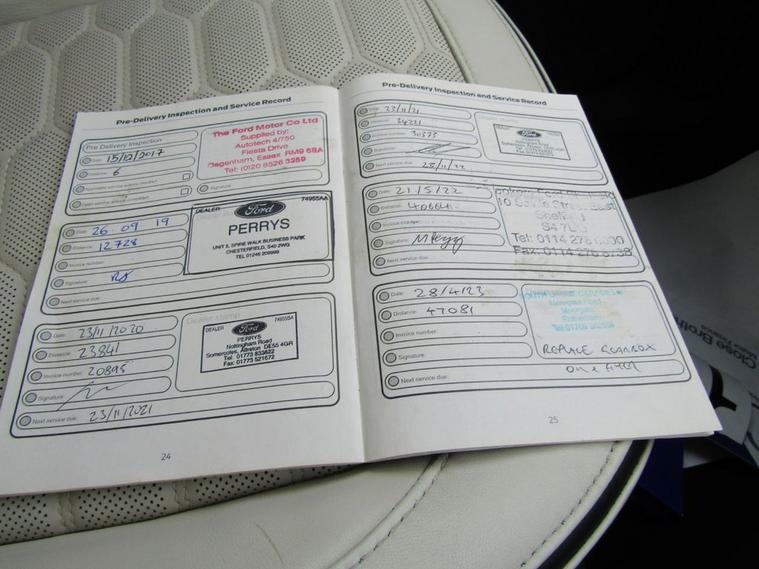 Pre-Delivery Inspection and Service Record
Pre Delivery Inspection
Date: 15/12/2017
Distance: 6
Signature:
The Ford Motor Co Ltd
Supplied by:
Autotech 4/750
Fiesta Drive
Dagenham, Essex RM9 6SA
Tel: (020 8526 3259
Date: 26 09 19
Distance: 12728
Invoice number:
Signature:
Next service due:
DEALER
Ford
74955AA
PERRYS
UNIT 5, SPIRE WALK BUSINESS PARK
CHESTERFIELD, S40 2WG
TEL 01246 209999
Date: 23/11/2020
Distance: 23841
Invoice number: 20895
Signature:
Next service due: 23/11/2021
Dealer stamp
DEALER
Ford
PERRYS
Nottingham Road
Somercotes, Alfreton DE55 4GR
Tel: 01773 833822
Fax: 01773 521672
24
Pre-Delivery Inspection and Service Record
Date: 23/11/21
Invoice number:
Signature:
Next service due:
Ford
Date: 21/5/22
Distance:
Signature:
Next service due:
Sheffield
Tel: 0114
Fax: 0114
Date: 28/4/23
Distance: 47081
Invoice number:
Signature:
Next service due:
Rotherham
REPLACE GEARBOX
25
Close Broth